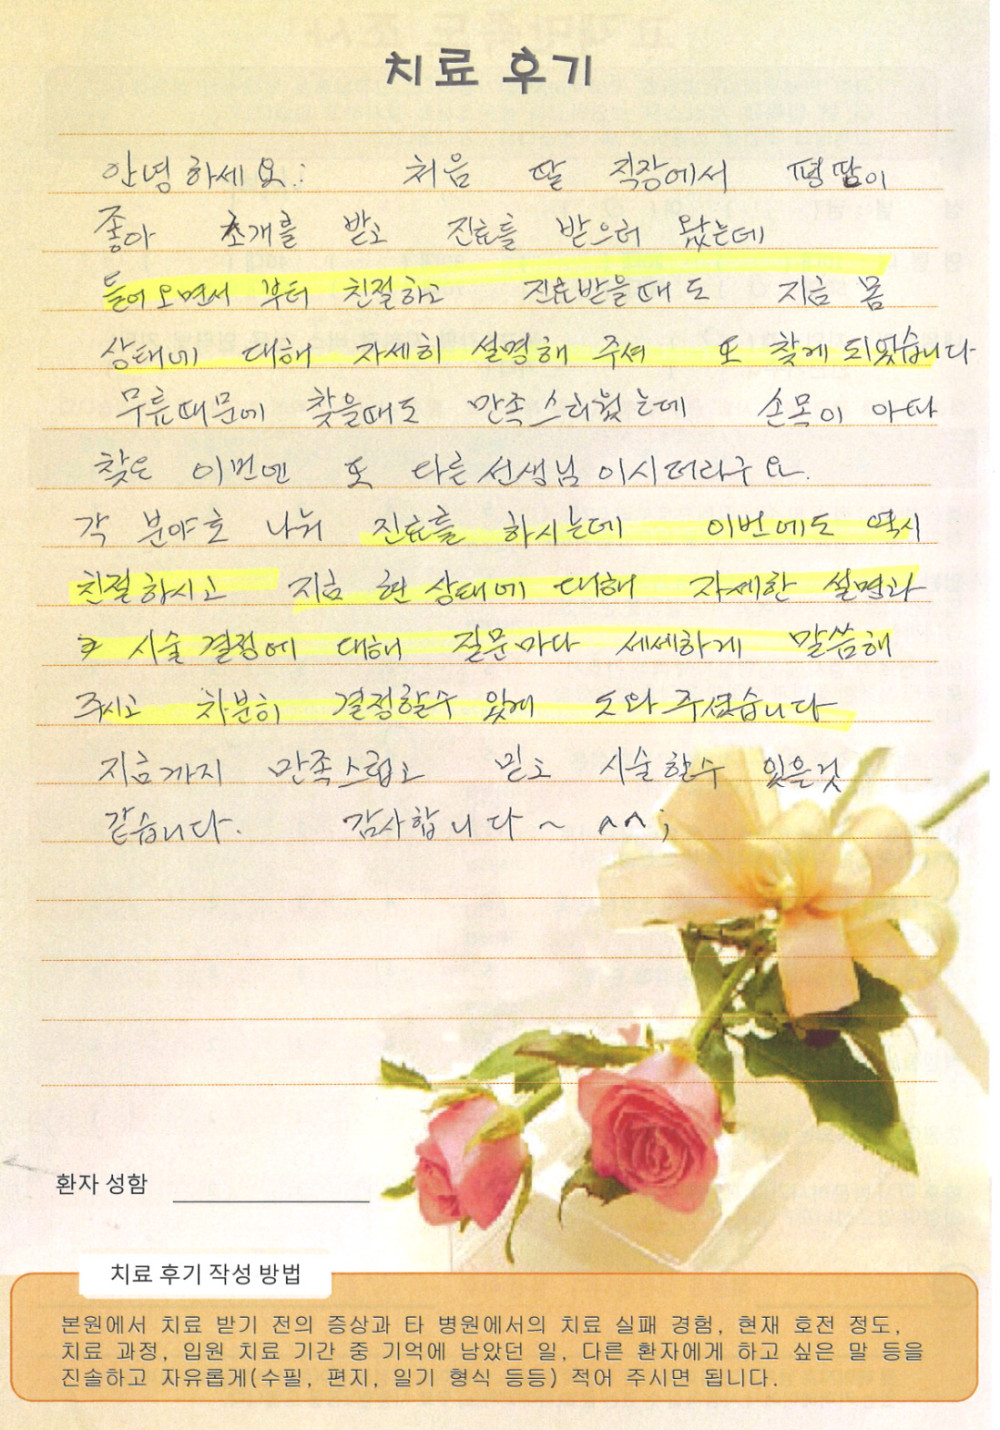 치료 후기
안녕하세요.: 처음 딸 직장에서 평판이
좋아 소개를 받고 진료를 받으러 왔는데
들어오면서 부터 친절하고 진료받을때도 지금 몸
상태에 대해 자세히 설명해 주셔 또 찾게 되었습니다
무릎때문에 찾을때도 만족스러웠는데 손목이 아파
찾은 이번엔 또 다른 선생님이시더라구요.
각 분야로 나눠 진료를 하시는데 이번에도 역시
친절하시고 지금 현 상태에 대해 자세한 설명과
시술결정에 대해 질문마다 세세하게 말씀해
주시고 차분히 결정할수 있게 도와주셨습니다
지금까지 만족스럽고 믿고 시술할수 있을것
같습니다. 감사합니다~ ^^;
환자 성함
치료 후기 작성 방법
본원에서 치료 받기 전의 증상과 타 병원에서의 치료 실패 경험, 현재 호전 정도,
치료 과정, 입원 치료 기간 중 기억에 남았던 일, 다른 환자에게 하고 싶은 말 등을
진솔하고 자유롭게(수필, 편지, 일기 형식 등등) 적어 주시면 됩니다.